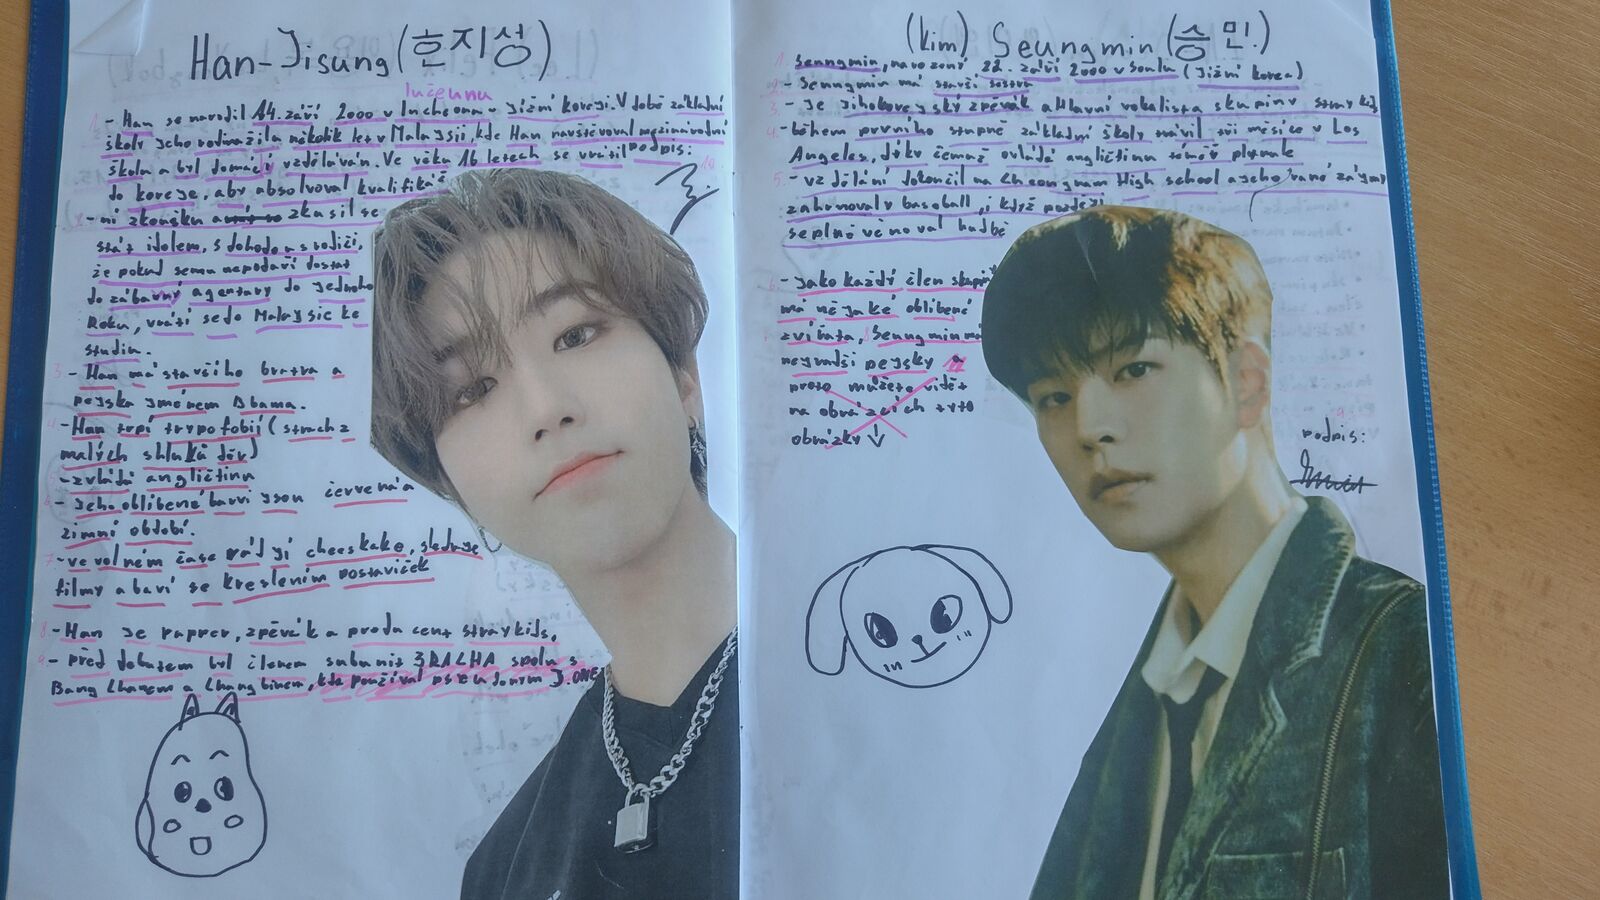 Han-Jisung (한지성)
Inčeunu
1. - Han se narodil 14. září 2000 v Incheonu v jižní koreji. V době základní
školy jeho rodina žila několik let v Malajsii, kde Han navštěvoval mezinárodní
školu a byl domácí vzděláván. Ve věku 16 letech se vrátil
podpis: 10.
do koreje, aby absolvoval kvalifikač
2. - ní zkoušku a zkusil se
stát idolem, s dohodou s rodiči,
že pokud se mu nepodaří dostat
do zábavný agentury do jednoho
Roku, vrátí se do Malajsie ke
studiu.
3. - Han má staršího bratra a
pejska jménem Bbama.
4. - Han trpí trypofobií (strach z
malých shluků děr)
- zvládá angličtinu
6. - Jeho oblíbené barvi json červená a
zimní období.
7. - ve volném čase rád jí cheeskake, sleduje
filmy a baví se kreslením postaviček
8. - Han je rapper, zpěvák a producent stray kids,
9. - před debutem byl členem subunit 3RACHA spolu s
Bang Chanem a Changbinem, kde používal pseudonym J.ONE
(kim) Seungmin (승민.)
1. Seungmin, narozený 22. září 2000 v Soulu (Jižní korea)
2. - Seungmin má starší sestru
3. - Je jihokorejský zpěvák a hlavní vokalista skupiny stray kids
4. - během prvního stupně základní školy trávil tři měsíce v Los
Angeles, díky čemuž ovládá angličtinu téměř plynule
5. - vzdělání dokončil na Cheongdam High school a jeho rané zájmy
zahrnovaly baseball, i když později
se plně věnoval hudbě
6. - Jako každý člen skupiny
má nějaké oblíbené
zvířata, Seungmin má
nejradši pejsky a
proto můžete vidět
na obrázcích tyto
obrázky ↓
podpis: